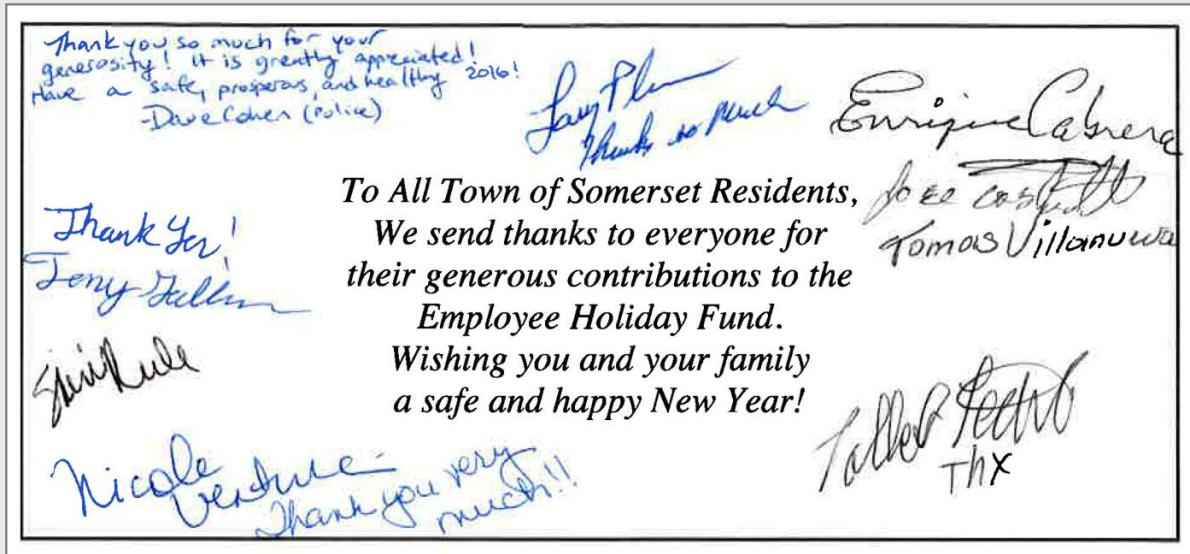 Thank you so much for your
generosity! It is greatly appreciated!
Have a safe, prosperous, and healthy 2016!
-Dave Cohen (Police)
Thanks so much
Enrique Cabrera
Jose
Tomas Villanueva
To All Town of Somerset Residents,
We send thanks to everyone for
their generous contributions to the
Employee Holiday Fund.
Wishing you and your family
a safe and happy New Year!
Thank You!
Tony
Nicole
Thank you very
much!!
Thx